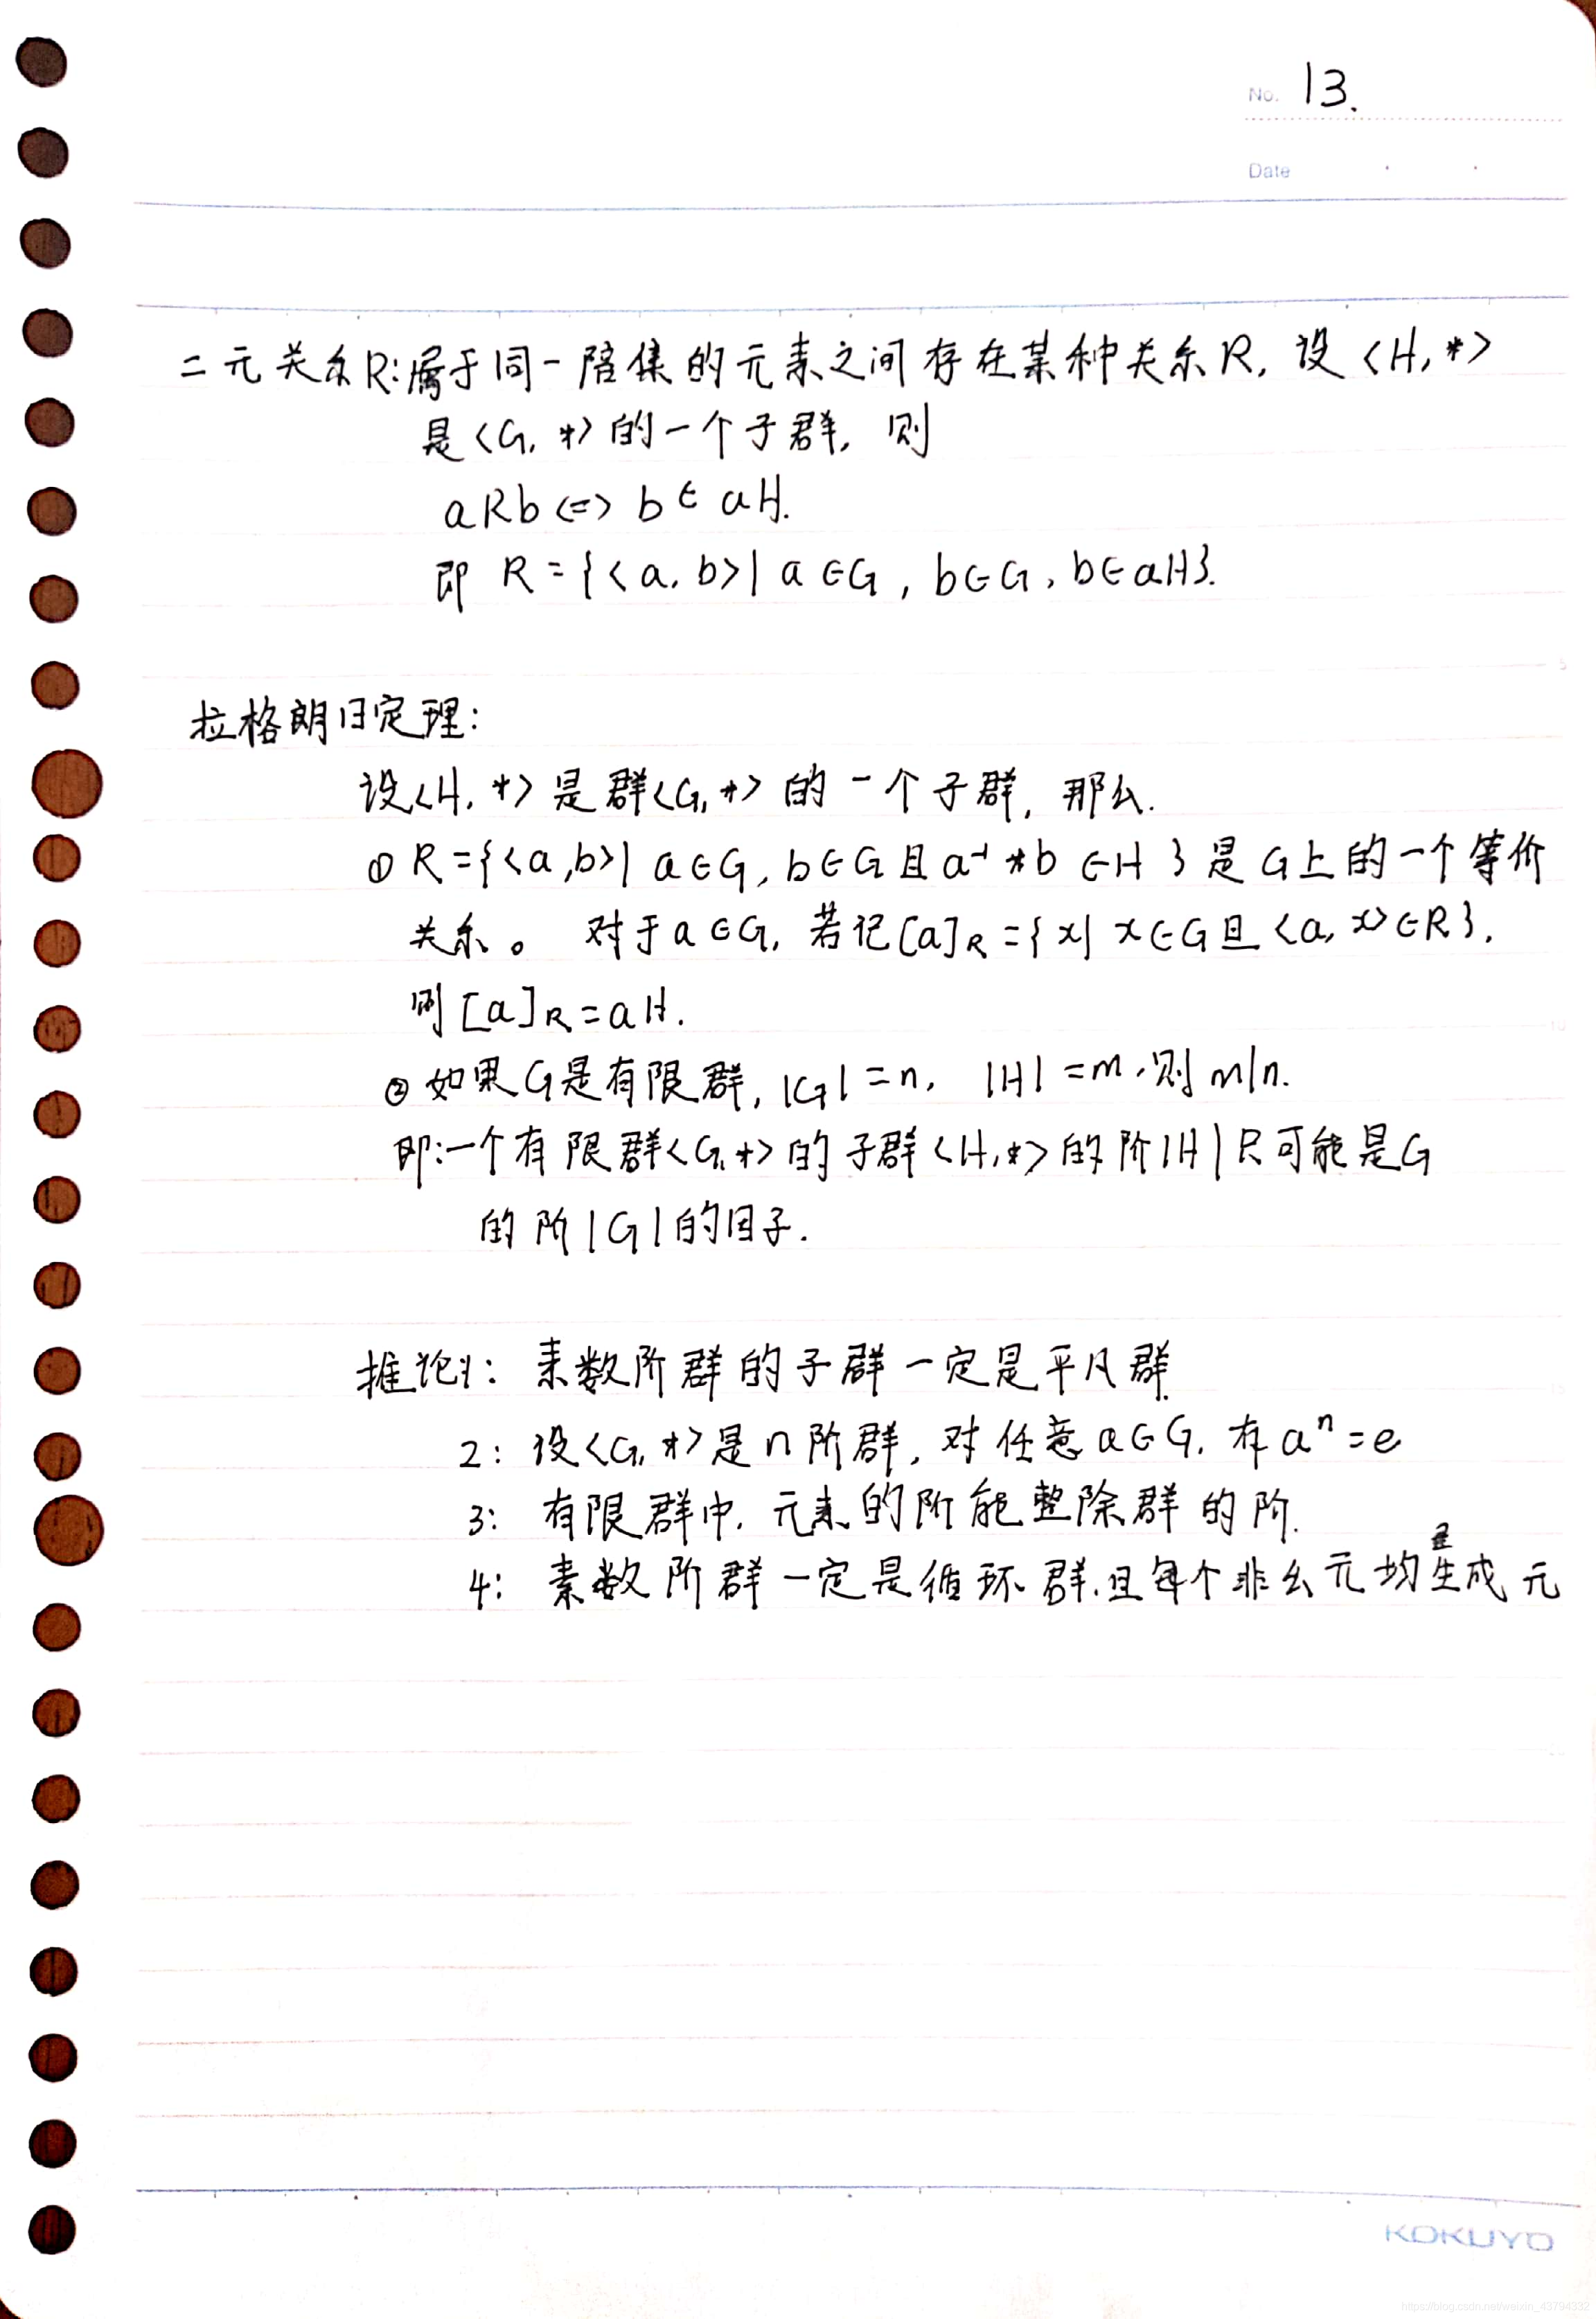 No. 13.
Date
二元关系R:属于同一陪集的元素之间存在某种关系R, 设<H, *>
是<G, *>的一个子群, 则
aRb<=> b∈aH.
即 R={<a, b>| a∈G, b∈G, b∈aH}.
拉格朗日定理:
设<H, *>是群<G, *>的一个子群, 那么.
① R={<a,b>| a∈G, b∈G且a⁻¹*b∈H}是G上的一个等价
关系。 对于a∈G, 若记[a]R={x| x∈G且<a, x>∈R},
则[a]R=aH.
② 如果G是有限群, |G|=n, |H|=m, 则m|n.
即:一个有限群<G,*>的子群<H,*>的阶|H|只可能是G
的阶|G|的因子.
推论1: 素数阶群的子群一定是平凡群
2: 设<G, *>是n阶群, 对任意a∈G, 有aⁿ=e
3: 有限群中, 元素的阶能整除群的阶.
4: 素数阶群一定是循环群.且每个非幺元均是生成元
KOKUYO
https://blog.csdn.net/weixin_43794332